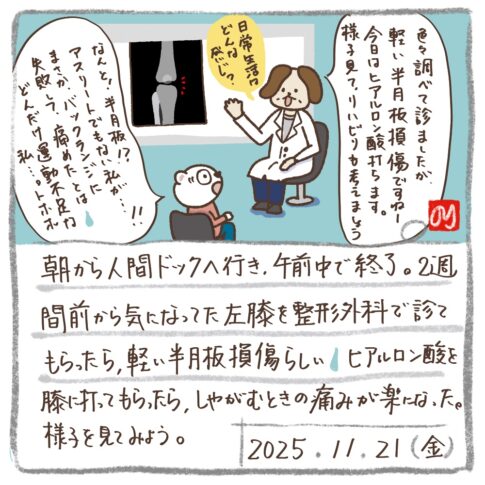 色々調べて診ましたが、
軽い半月板損傷ですねー
今日はヒアルロン酸打ちます。
様子見て、リハビリも考えましょう
日常生活は
どんな
感じ？
なんと！半月板！？
アスリートでもない私が…!!
まさか、バックランジに
失敗し、痛めたとは
どんだけ運動不足な
私…。トホホ
のり
朝から人間ドックへ行き、午前中で終了。2週
間前から気になってた左膝を整形外科で診て
もらったら、軽い半月板損傷らしい ヒアルロン酸を
膝に打ってもらったら、しゃがむときの痛みが楽になった。
様子を見てみよう。
2025.11.21(金)